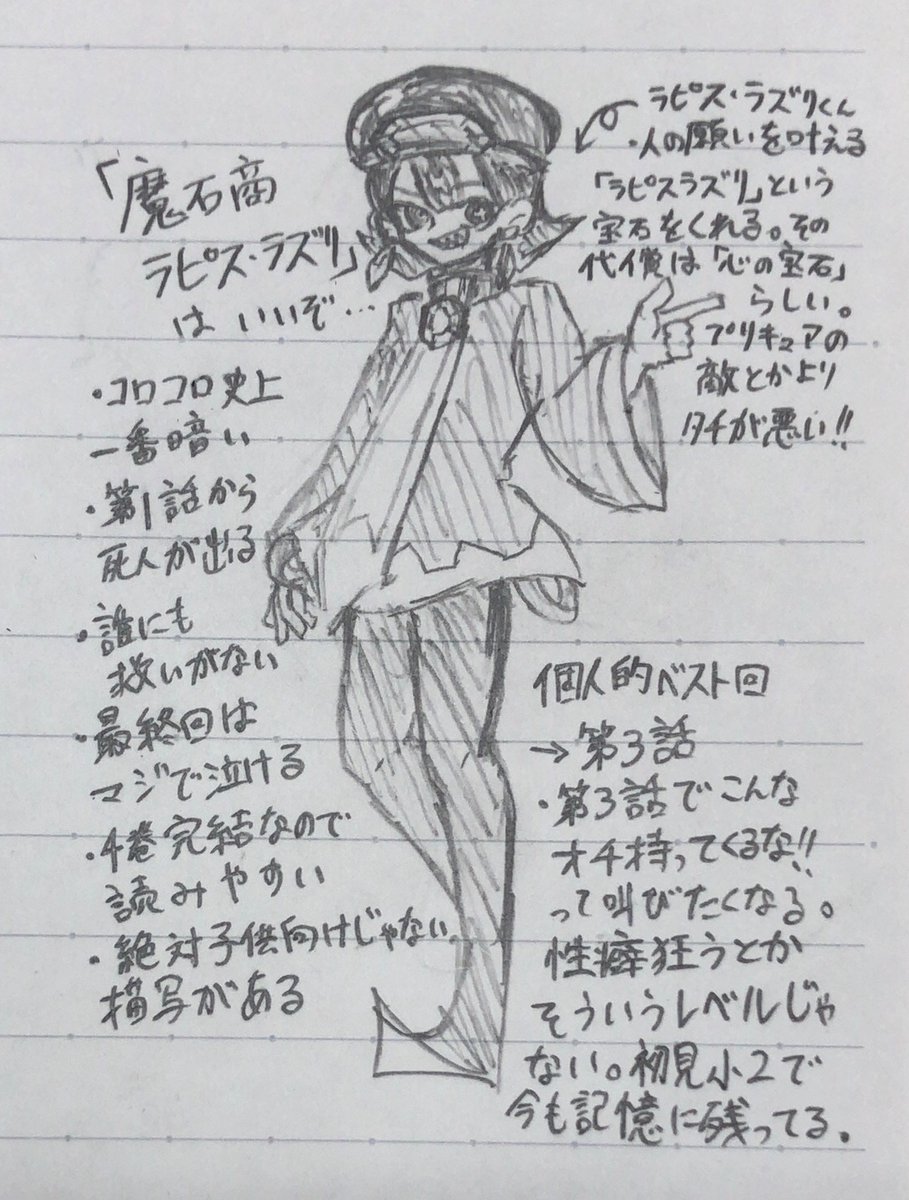 「魔石商
ラピス・ラズリ」
は いいぞ…
・コロコロ史上
一番暗い
・第1話から
死人が出る
・誰にも
救いがない
・最終回は
マジで泣ける
・4巻完結なので
読みやすい
・絶対子供向けじゃない
描写がある
ラピス・ラズリくん
・人の願いを叶える
「ラピスラズリ」という
宝石をくれる。その
代償は「心の宝石」
らしい。
プリキュアの
敵とかより
タチが悪い!!
個人的ベスト回
→第3話
・第3話でこんな
オチ持ってくるな!!
って叫びたくなる。
性癖狂うとか
そういうレベルじゃ
ない。初見小2で
今も記憶に残ってる。